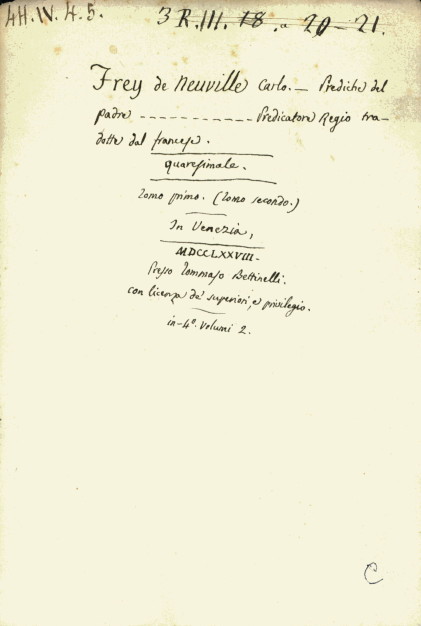 4H.IV.4.5.
3 R.III. 18. a 20-21.
Frey de Neuville Carlo. — Prediche del
padre ----------- Predicatore Regio tra-
dotte dal francese.
quaresimale.
tomo primo. (tomo secondo.)
In Venezia,
MDCCLXXVIII.
Presso Tommaso Bettinelli.
con licenza de' superiori, e privilegio.
in-4º. Volumi 2.
C